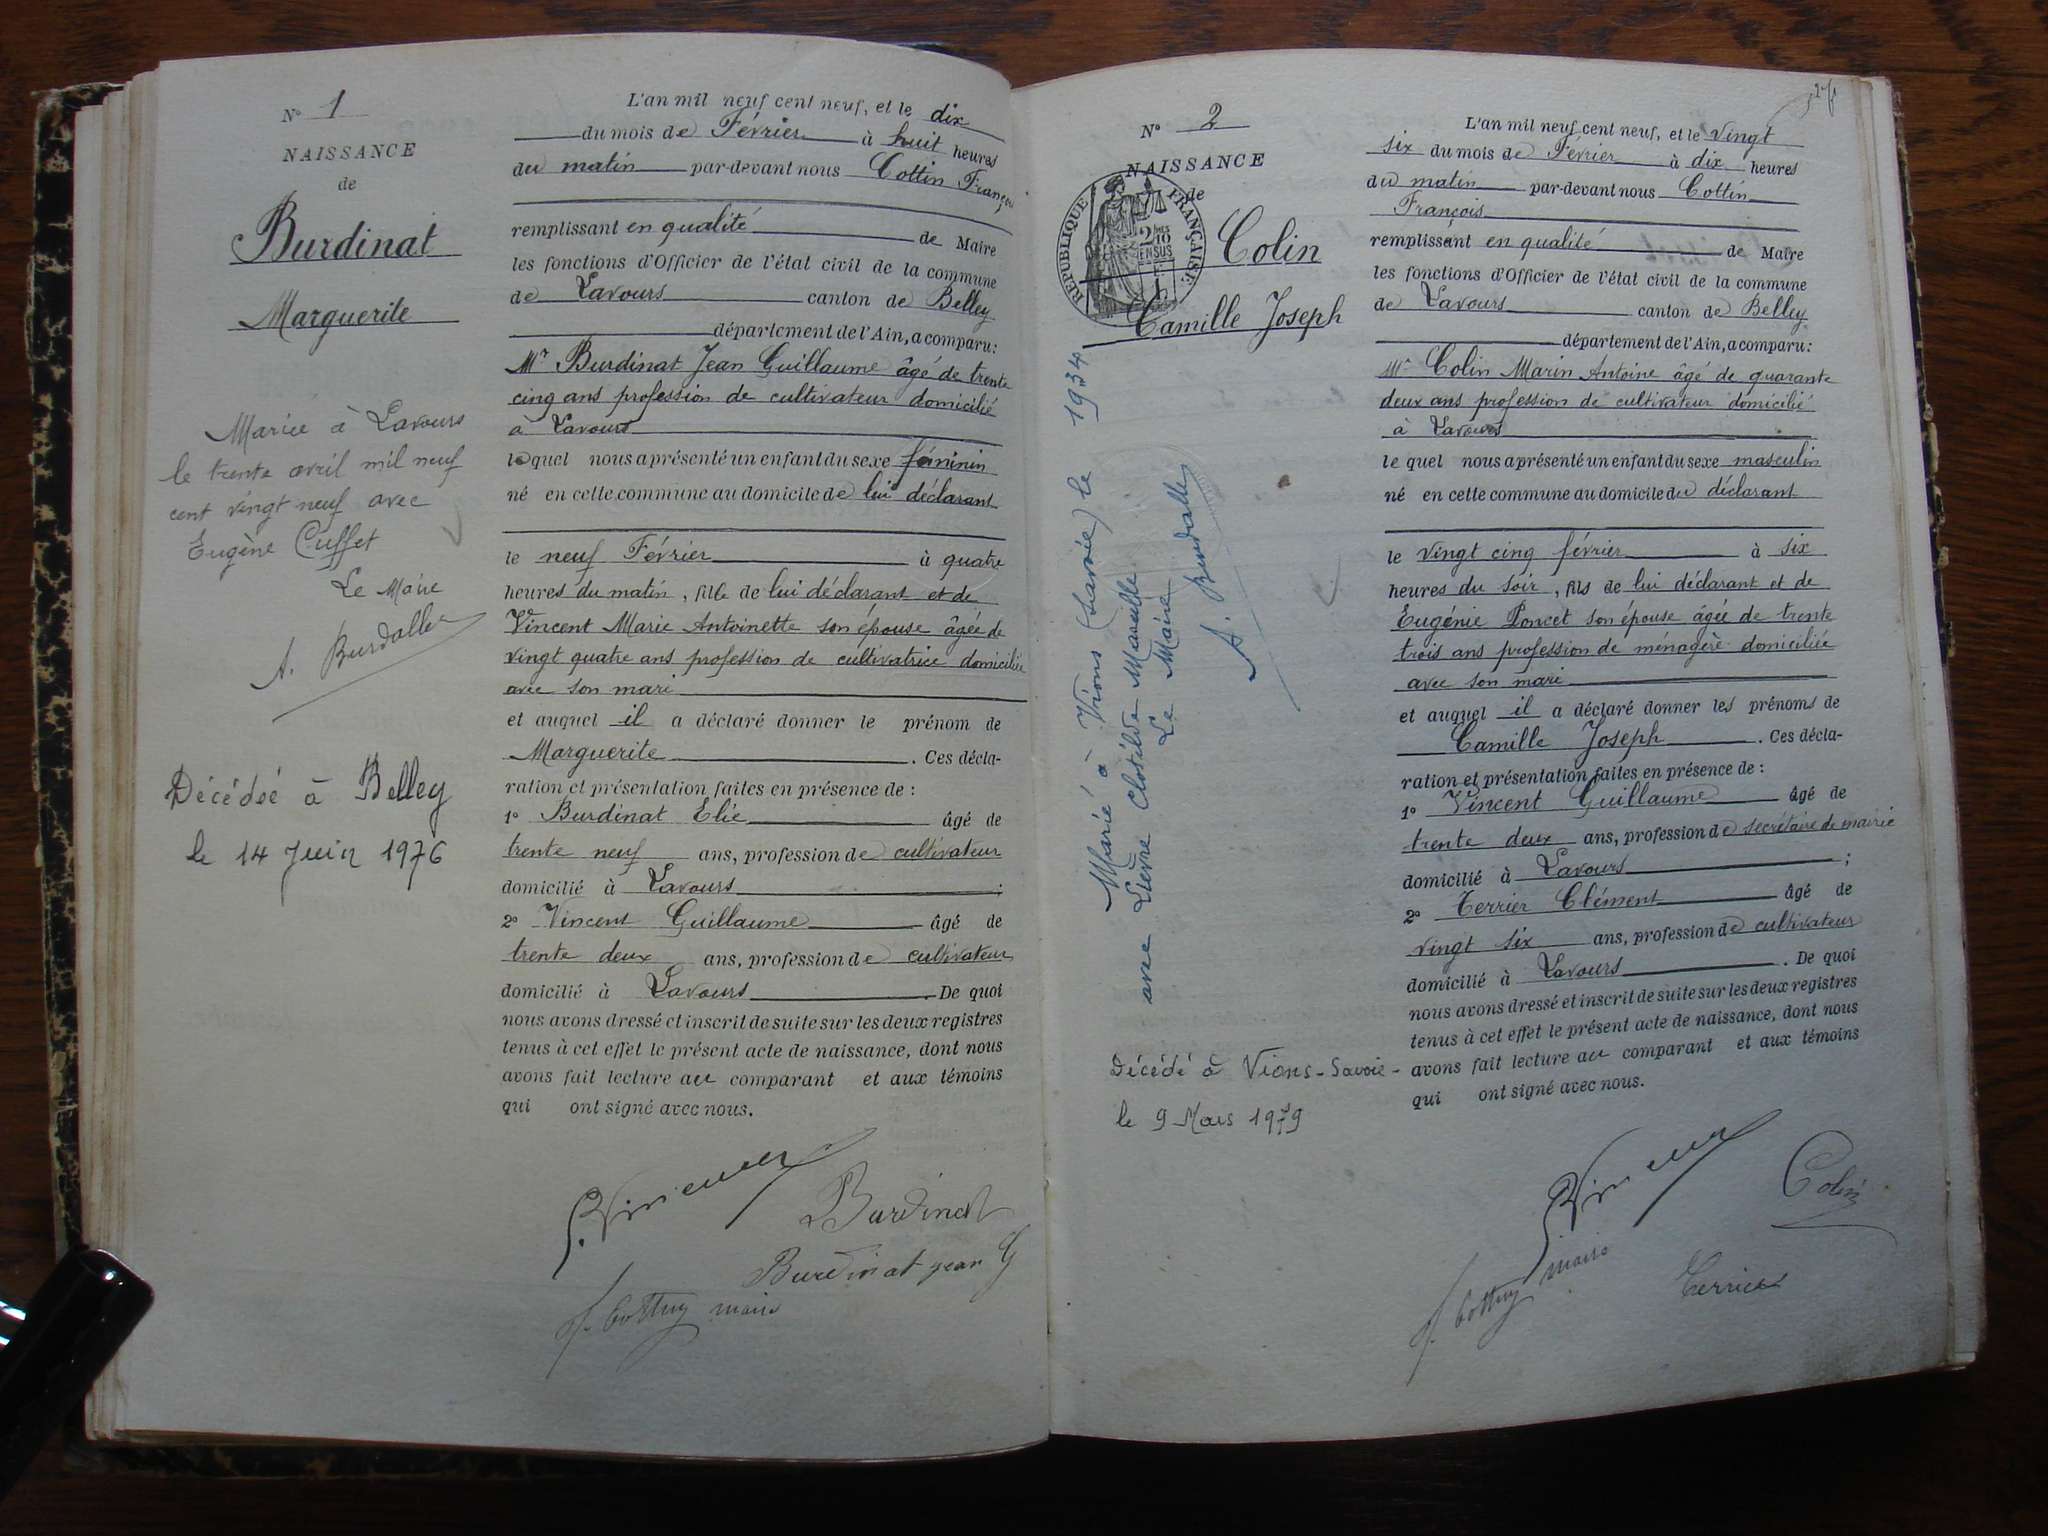 N° 1
NAISSANCE
de
Burdinat
Marguerite
Mariée à Lavours
le trente avril mil neuf
cent vingt neuf avec
Eugène Cuffet
Le Maire
A. Burdallet
Décédée à Belley
le 14 Juin 1976
L'an mil neuf cent neuf, et le dix
du mois de Février à huit heures
du matin par-devant nous Cottin François
remplissant en qualité de Maire
les fonctions d'Officier de l'état civil de la commune
de Lavours canton de Belley
département de l'Ain, a comparu:
Mr Burdinat Jean Guillaume âgé de trente
cinq ans profession de cultivateur domicilié
à Lavours
lequel nous a présenté un enfant du sexe féminin
né en cette commune au domicile de lui déclarant
le neuf Février à quatre
heures du matin, fille de lui déclarant et de
Vincent Marie Antoinette son épouse âgée de
vingt quatre ans profession de cultivatrice domiciliée
avec son mari
et auquel il a déclaré donner le prénom de
Marguerite. Ces décla-
ration et présentation faites en présence de :
1° Burdinat Elie âgé de
trente neuf ans, profession de cultivateur
domicilié à Lavours ;
2° Vincent Guillaume âgé de
trente deux ans, profession de cultivateur
domicilié à Lavours. De quoi
nous avons dressé et inscrit de suite sur les deux registres
tenus à cet effet le présent acte de naissance, dont nous
avons fait lecture au comparant et aux témoins
qui ont signé avec nous.
G. Vincent
Burdinat
Burdinat jean G
f. Cottin maire
N° 2
NAISSANCE
de
RÉPUBLIQUE FRANÇAISE
2/10 EN SUS
Colin
Camille Joseph
Marié à Vions (Savoie) le 1934
avec Lièvre Clotilde Marcelle
Le Maire
A. Burdallet
Décédé à Vions-Savoie-
le 9 Mars 1979
L'an mil neuf cent neuf, et le vingt
six du mois de Février à dix heures
du matin par-devant nous Cottin
François
remplissant en qualité de Maire
les fonctions d'Officier de l'état civil de la commune
de Lavours canton de Belley
département de l'Ain, a comparu:
Mr Colin Marin Antoine âgé de quarante
deux ans profession de cultivateur domicilié
à Lavours
lequel nous a présenté un enfant du sexe masculin
né en cette commune au domicile du déclarant
le vingt cinq février à six
heures du soir, fils de lui déclarant et de
Eugénie Poncet son épouse âgée de trente
trois ans profession de ménagère domiciliée
avec son mari
et auquel il a déclaré donner les prénoms de
Camille Joseph. Ces décla-
ration et présentation faites en présence de :
1° Vincent Guillaume âgé de
trente deux ans, profession de secrétaire de mairie
domicilié à Lavours ;
2° Terrier Clément âgé de
vingt six ans, profession de cultivateur
domicilié à Lavours. De quoi
nous avons dressé et inscrit de suite sur les deux registres
tenus à cet effet le présent acte de naissance, dont nous
avons fait lecture au comparant et aux témoins
qui ont signé avec nous.
G. Vincent
Colin
f. Cottin maire
Terrier